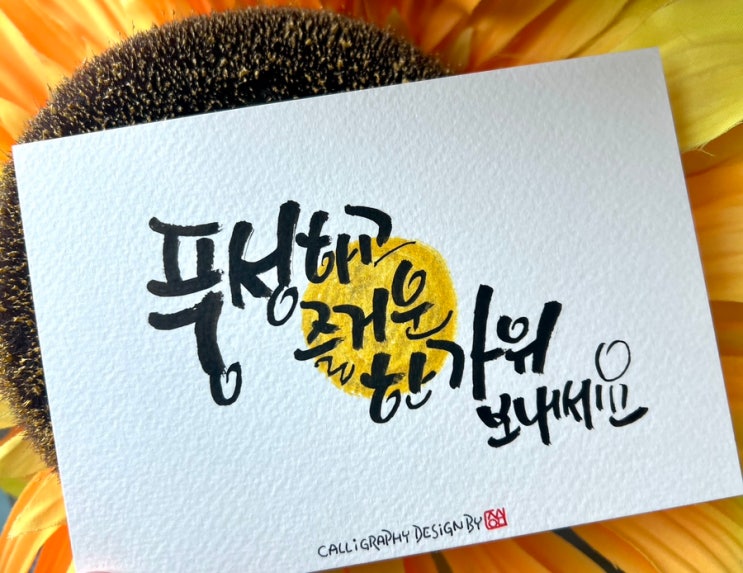 풍성하고
즐거운
한가위
보내세요
CALLiGRAPHY DESiGN BY